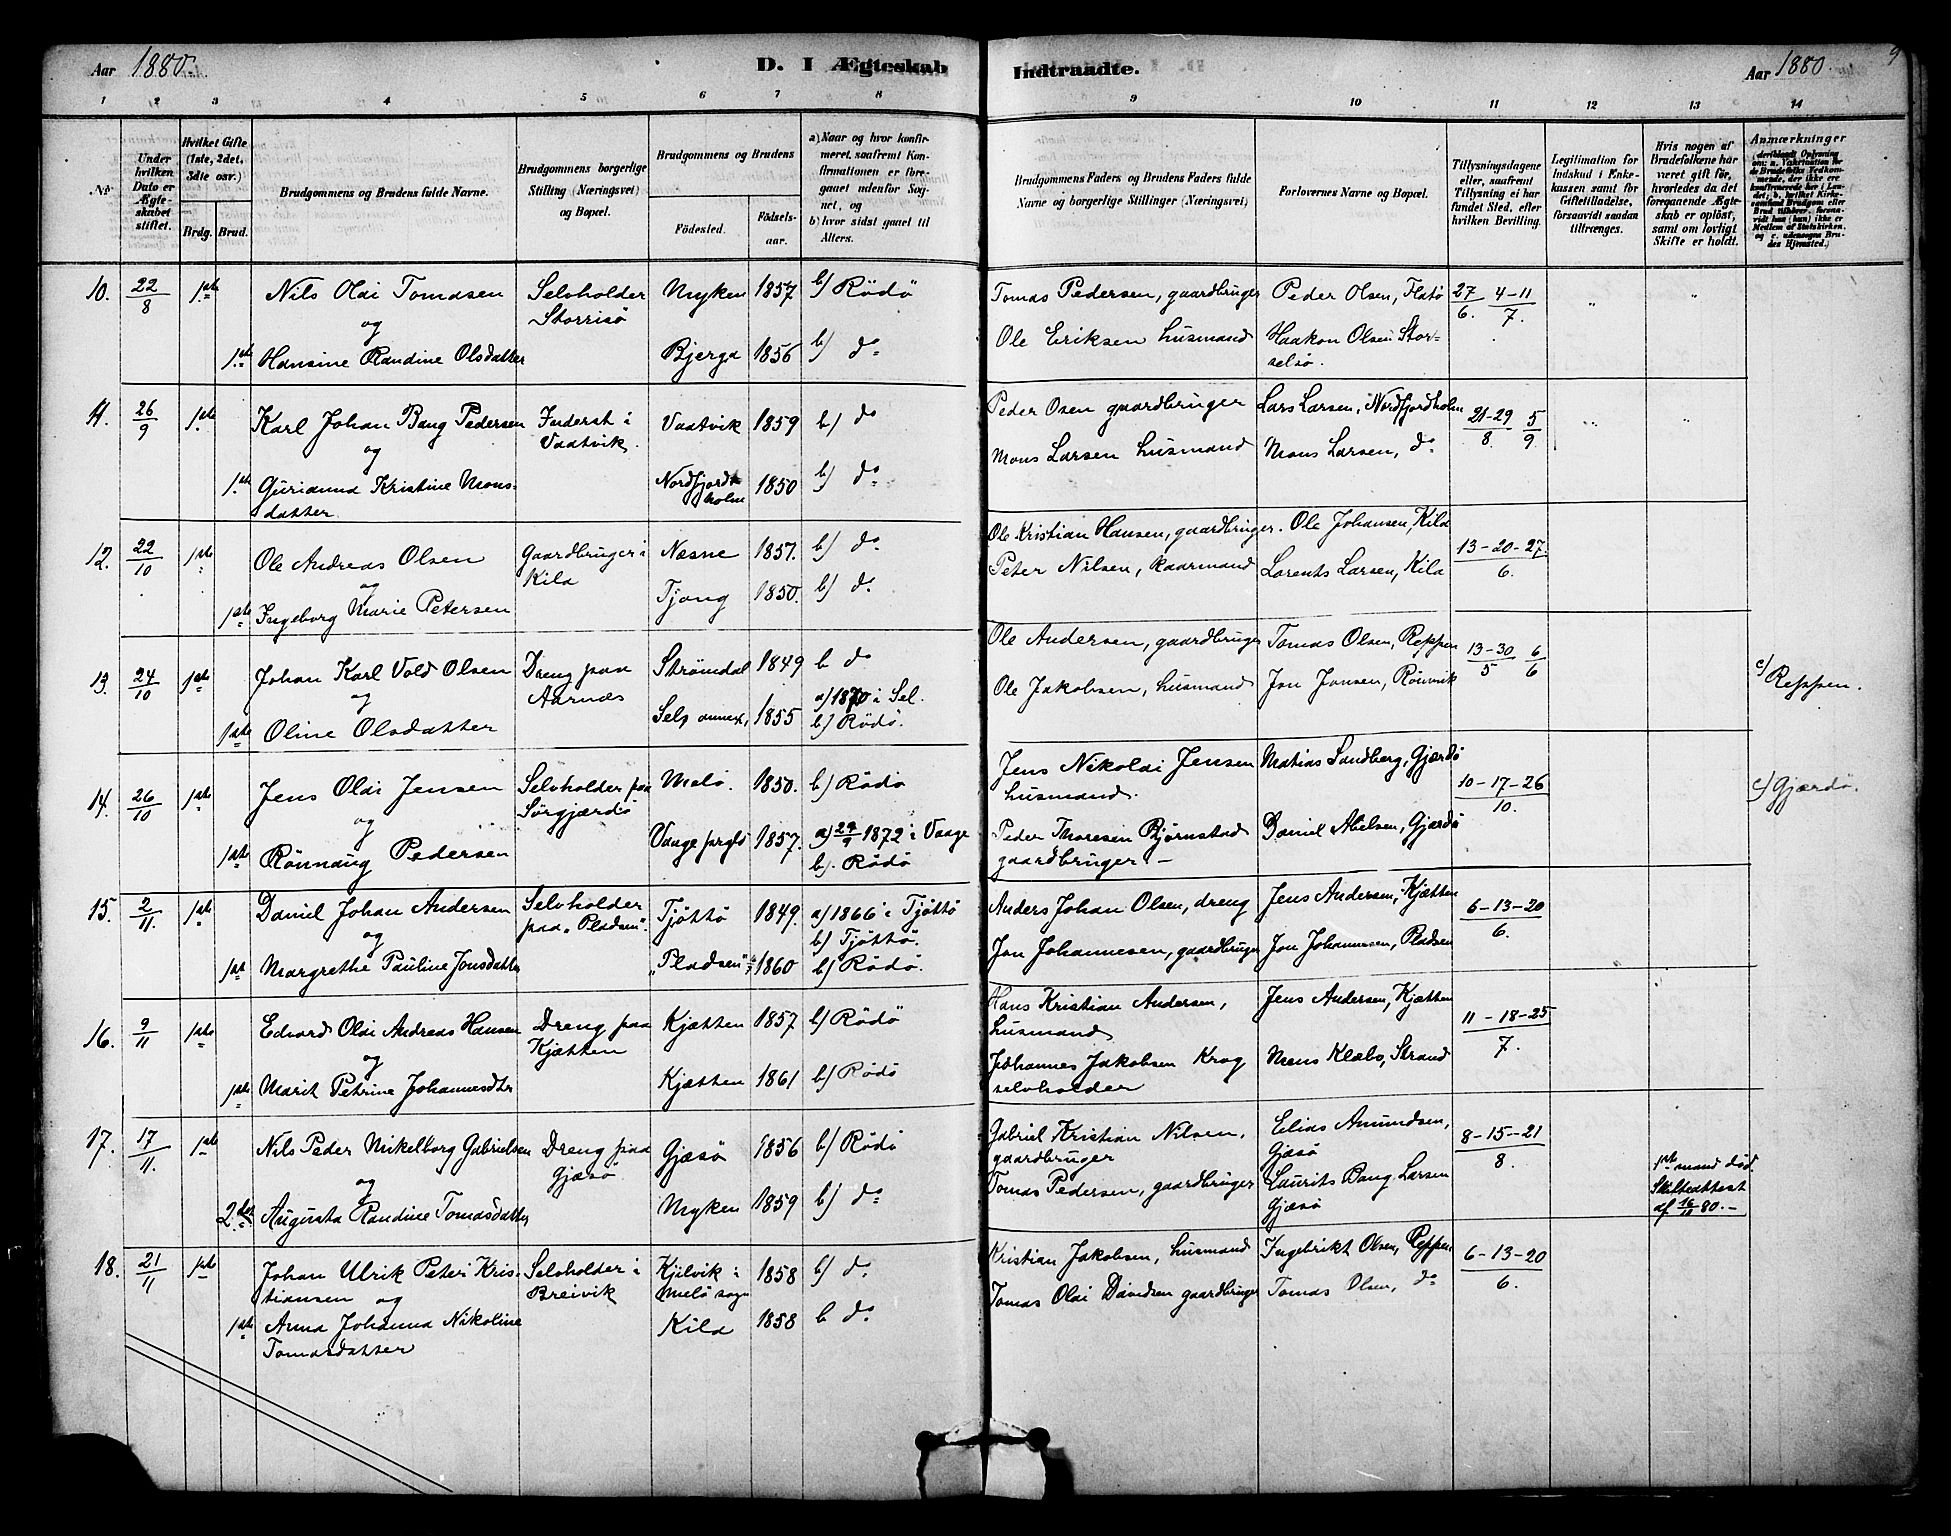 Aar 1880.
D. I Ægteskab
Indtraadte.
Aar 1880.
9
1 2 3 4 5 6 7 8 9 10 11 12 13 14
No.
Under hvilken Dato er Ægteskabet stiftet.
Hvilket Gifte (1ste, 2det, 3die osv.)
Brdg. Brud.
Brudgommens og Brudens fulde Navne.
Brudgommens borgerlige Stilling (Næringsvei) og Bopæl.
Brudgommens og Brudens
Födested.
Födselsaar.
a) Naar og hvor konfirmeret, saafremt Konfirmationen er foregaaet udenfor Sognet, og
b) hvor sidst gaaet til Alters.
Brudgommens Faders og Brudens Faders fulde Navne og borgerlige Stillinger (Næringsvei)
Forlovernes Navne og Bopæl.
Tillysningsdagene eller, saafremt Tillysning ei har fundet Sted, efter hvilken Bevilling.
Legitimation for Indskud i Enkekassen samt for Giftetilladelse, forsaavidt saadan tiltrænges.
Hvis nogen af Brudefolkene har været gift för, hvorledes da det foregaaende Ægteskab er oplöst, samt om lovligt Skifte er holdt.
Anmærkninger
10. 22/8 1ste Nils Oldi Tomasen Selvholder Storrisö Myken 1857 b) Rödö Tomas Pedersen, gaardbruger Peder Olsen, Flatö 27/6. 4-11/7. " "
og
1ste Hansine Randine Olsdatter Bjerga 1856 b) do Ole Eriksen husmand Haakon Olsen Storselsö.
11. 26/9 1ste Karl Johan Bang Pedersen Inderst i Vaatvik. Vaatvik 1859 b) do Peder Osen gaardbruger Lars Larsen, Nordfjordholm 21-29/8. 5/9. " "
og
1ste Gurianna Kristine Monsdatter Nordfjordholm 1850 b) do Mons Larsen husmand Mons Larsen, do
12. 22/10 1ste Ole Andreas Olsen Gaardbruger i Kila Nesne 1857. b) do Ole Kristian Hansen, gaardbruger. Ole Johansen, Kila 13-20-27./6.
og
1ste Ingeborg Marie Petersen Tjong 1850. b) do Peter Nilsen, kaarmand Lorents Larsen, Kila
13. 24/10 1ste Johan Karl Vold Olsen Dreng paa Aarnæs Strömdal 1849 b do Ole Andersen, gaardbruger Tomas Olsen, Reppen 13-30/5 6/6 c) Reppen.
og
1ste Oline Olsdatter Selp annex, 1855 a) 1870 i Sel. b) Rödö. Ole Jakobsen, husmand Jon Jonsen, Rönvik
14. 26/10 1ste Jens Oldi Jensen Selvholder paa Sörgjærdö Melö. 1850. b) Rödö Jens Nikolai Jensen husmand. Matias Sandberg, Gjærdö 10-17-26/10. c) Gjærdö.
og
1ste Rönnaug Pedersen Vaage prgld 1857. a) 29/9 1872 i Vaage b). Rödö Peder Thoresen Bjørnstad gaardbruger.- Daniel Abelsen, Gjærdö
15. 2/11. 1ste Daniel Johan Andersen Selvholder paa "Pladsen". Tjöttö 1849. a) 1866 i Tjöttö b) Tjöttö. Anders Johan Olsen, dreng Jens Andersen, Kjætten 6-13-20/6.
og
1ste Margrethe Pauline Jonsdatter "Pladsen" 1860 b) Rödö. Jon Johannesen, gaardbruger Jon Johannesen, Pladsen
16. 9/11 1ste Edvard Oldi Andreas Hansen Dreng paa Kjætten Kjætten 1857 b) Rödö Hans Kristian Andersen, husmand Jens Andersen, Kjætten 11-18-25/7.
og
1ste Marit Petrine Johannesdtr Kjætten 1861 b) Rödö Johannes Jakobsen Krog selvholder Mons Klæbo, Strand
17. 17/11. 1ste Nils Peder Mikelborg Gabrielsen Dreng paa Gjæsö Gjæsö 1856 b) Rödö Gabriel Kristian Nilsen, gaardbruger Elias Amundsen, Gjæsö 8-15-21/8. 1ste mand död. Skifteattest af 16/11 80.-
og
2den Augusta Randine Tomasdatter Myken 1859 b) do Tomas Pedersen, gaardbruger Laurits Bang Larsen Gjæsö
18. 21/11 1ste Johan Ulrik Peter Kristiansen Selvholder i Breivik Kjilvik i Melö sogn 1858 b) do Kristian Jakobsen, husmand Ingebrikt Olsen, Reppen 6-13-20/6.
og
1ste Anna Johanna Nikoline Tomasdatter Kila 1858 b do Tomas Oldi Davidsen gaardbruger Tomas Olsen, do